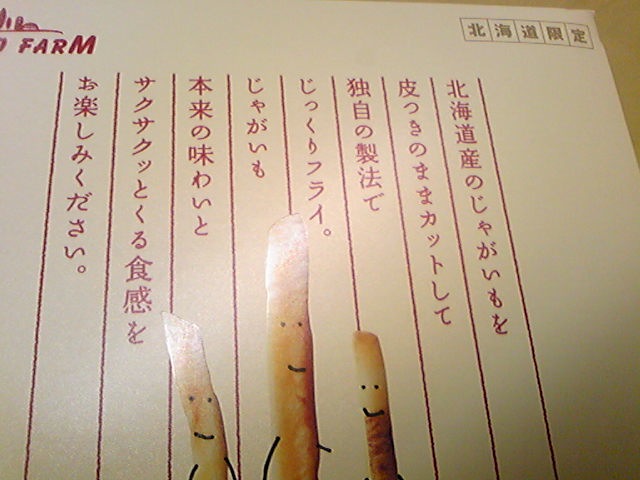 FARM
北海道限定
北海道産のじゃがいもを
皮つきのままカットして
独自の製法で
じっくりフライ。
じゃがいも
本来の味わいと
サクサクッとくる食感を
お楽しみください。